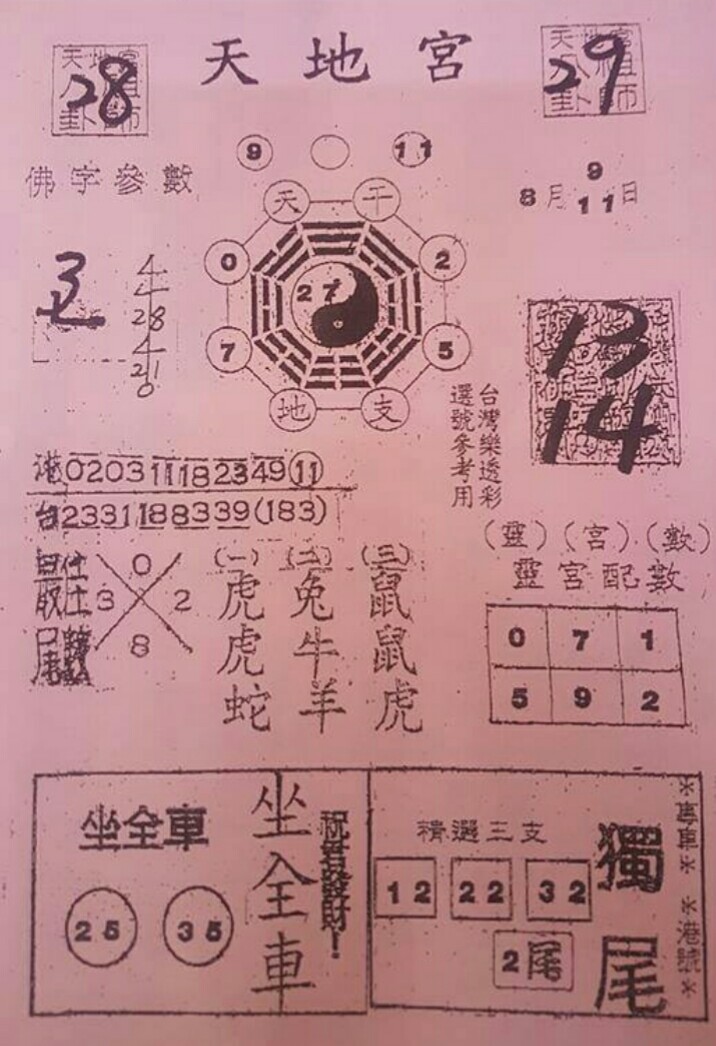 天地宮
天地宮
八祖
卦師
28
天地宮
八祖
卦師
29
9
11
佛字參數
8月9日
11
天干
0
2
27
7
5
地支
28
21
0
13
14
台灣樂透彩
選號參考用
港020311118 2349(11)
台2331188339(183)
0
3
2
8
尾數
(一)(二)(三)
虎兔鼠
虎牛鼠
蛇羊虎
(靈)(宮)(數)
靈宮配數
0 7 1
5 9 2
坐全車
25 35
坐全車
祝君發財!
精選三支
12 22 32
2尾
獨尾
*專車* *港號*